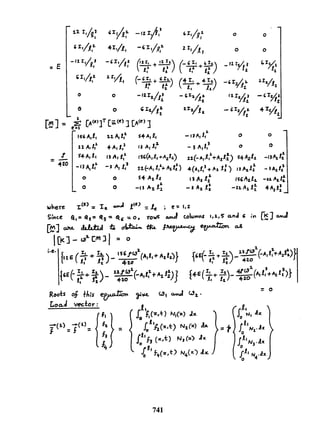 = E
12 I₁/ℓ₁³ 6 I₁/ℓ₁² -12 I₁/ℓ₁³ 6 I₁/ℓ₁² 0 0
6 I₁/ℓ₁² 4 I₁/ℓ₁ -6 I₁/ℓ₁² 2 I₁/ℓ₁ 0 0
-12 I₁/ℓ₁³ -6 I₁/ℓ₁² (12 I₁/ℓ₁³ + 12 I₂/ℓ₂³) (-6 I₁/ℓ₁² + 6 I₂/ℓ₂²) -12 I₂/ℓ₂³ 6 I₂/ℓ₂²
6 I₁/ℓ₁² 2 I₁/ℓ₁ (-6 I₁/ℓ₁² + 6 I₂/ℓ₂²) (4 I₁/ℓ₁ + 4 I₂/ℓ₂) -6 I₂/ℓ₂² 2 I₂/ℓ₂
0 0 -12 I₂/ℓ₂³ -6 I₂/ℓ₂² 12 I₂/ℓ₂³ -6 I₂/ℓ₂²
0 0 6 I₂/ℓ₂² 2 I₂/ℓ₂ -6 I₂/ℓ₂² 4 I₂/ℓ₂
[M] = Σ [A⁽ᵉ⁾]ᵀ [m̄⁽ᵉ⁾] [A⁽ᵉ⁾]
= ρ/420
156 A₁ℓ₁ 22 A₁ℓ₁² 54 A₁ℓ₁ -13 A₁ℓ₁² 0 0
22 A₁ℓ₁² 4 A₁ℓ₁³ 13 A₁ℓ₁² -3 A₁ℓ₁³ 0 0
54 A₁ℓ₁ 13 A₁ℓ₁² 156(A₁ℓ₁+A₂ℓ₂) 22(-A₁ℓ₁²+A₂ℓ₂²) 54 A₂ℓ₂ -13A₂ℓ₂²
-13 A₁ℓ₁² -3 A₁ℓ₁³ 22(-A₁ℓ₁²+A₂ℓ₂²) 4(A₁ℓ₁³+A₂ℓ₂³) 13 A₂ℓ₂² -3A₂ℓ₂³
0 0 54 A₂ℓ₂ 13 A₂ℓ₂² 156A₂ℓ₂ -22 A₂ℓ₂²
0 0 -13 A₂ℓ₂² -3 A₂ℓ₂³ -22 A₂ℓ₂² 4 A₂ℓ₂³
where I⁽ᵉ⁾ = Iₑ and ℓ⁽ᵉ⁾ = ℓₑ ; e = 1,2
Since Q₁ = Q₂ = Q₅ = Q₆ = 0, rows and columns 1,2,5 and 6 in [K] and
[M] are deleted to obtain the frequency equation as
| [K] - ω² [M] | = 0
i.e. {12E(I₁/ℓ₁³ + I₂/ℓ₂³) - 156 ρω²/420 (A₁ℓ₁+A₂ℓ₂)} {6E(-I₁/ℓ₁² + I₂/ℓ₂²) - 22 ρω²/420 (-A₁ℓ₁²+A₂ℓ₂²)}
{6E(-I₁/ℓ₁² + I₂/ℓ₂²) - 22 ρω²/420 (-A₁ℓ₁²+A₂ℓ₂²)} {4E(I₁/ℓ₁ + I₂/ℓ₂) - 4ρω²/420 (A₁ℓ₁³+A₂ℓ₂³)}
= 0
Roots of this equation give ω₁ and ω₂.
Load vector:
741